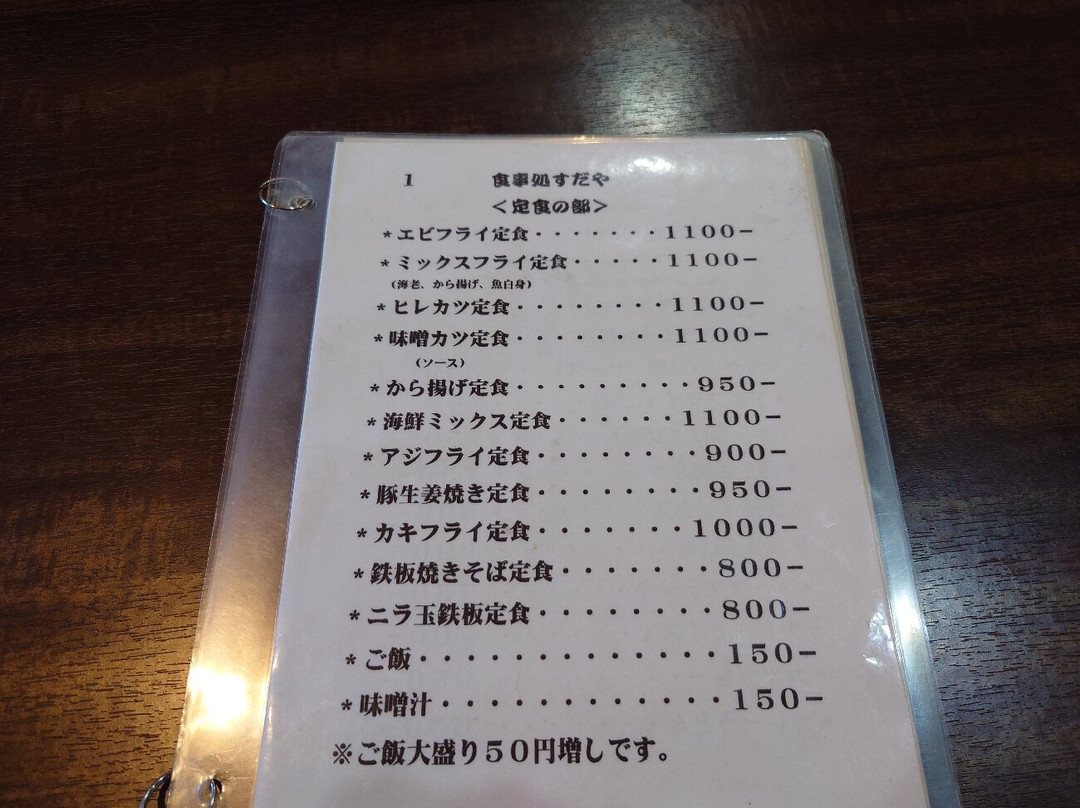 1 食事処すだや
＜定食の部＞
＊エビフライ定食・・・・・・・1100−
＊ミックスフライ定食・・・・・1100−
（海老、から揚げ、魚白身）
＊ヒレカツ定食・・・・・・・・1100−
＊味噌カツ定食・・・・・・・・1100−
（ソース）
＊から揚げ定食・・・・・・・・・950−
＊海鮮ミックス定食・・・・・・1100−
＊アジフライ定食・・・・・・・・900−
＊豚生姜焼き定食・・・・・・・・950−
＊カキフライ定食・・・・・・・1000−
＊鉄板焼きそば定食・・・・・・・800−
＊ニラ玉鉄板定食・・・・・・・・800−
＊ご飯・・・・・・・・・・・・・150−
＊味噌汁・・・・・・・・・・・・150−
※ご飯大盛り５０円増しです。